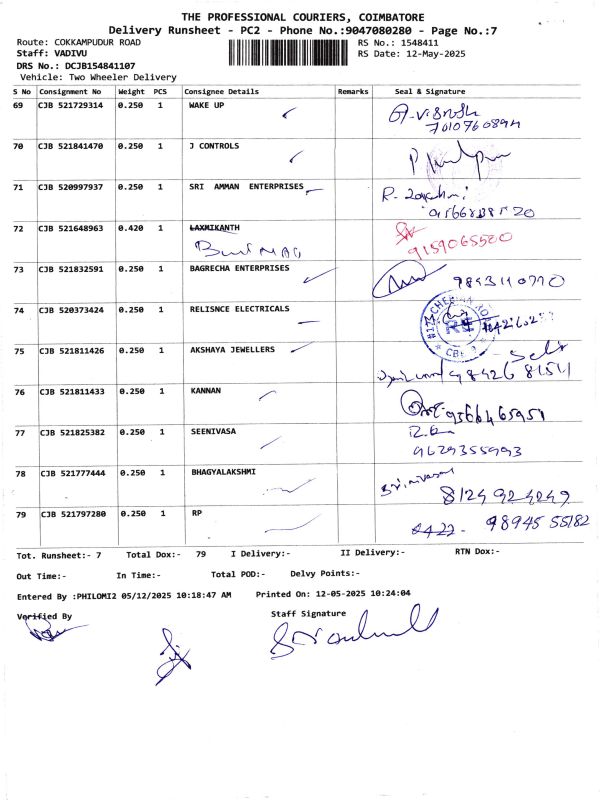 THE PROFESSIONAL COURIERS, COIMBATORE
Delivery Runsheet - PC2 - Phone No.:9047080280 - Page No.:7
Route: COKKAMPUDUR ROAD RS No.: 1548411
Staff: VADIVU RS Date: 12-May-2025
DRS No.: DCJB154841107
Vehicle: Two Wheeler Delivery
S No Consignment No Weight PCS Consignee Details Remarks Seal & Signature
69 CJB 521729314 0.250 1 WAKE UP
7010760894
70 CJB 521841470 0.250 1 J CONTROLS
71 CJB 520997937 0.250 1 SRI AMMAN ENTERPRISES
72 CJB 521648963 0.420 1 LAXMIKANTH
9159065500
73 CJB 521832591 0.250 1 BAGRECHA ENTERPRISES
74 CJB 520373424 0.250 1 RELISNCE ELECTRICALS
75 CJB 521811426 0.250 1 AKSHAYA JEWELLERS
98426 81511
76 CJB 521811433 0.250 1 KANNAN
9566465951
77 CJB 521825382 0.250 1 SEENIVASA
9629355993
78 CJB 521777444 0.250 1 BHAGYALAKSHMI
Srinivasan
8124924049
79 CJB 521797280 0.250 1 RP
98945 55182
Tot. Runsheet:- 7 Total Dox:- 79 I Delivery:- II Delivery:- RTN Dox:-
Out Time:- In Time:- Total POD:- Delvy Points:-
Entered By :PHILOMI2 05/12/2025 10:18:47 AM Printed On: 12-05-2025 10:24:04
Verified By Staff Signature